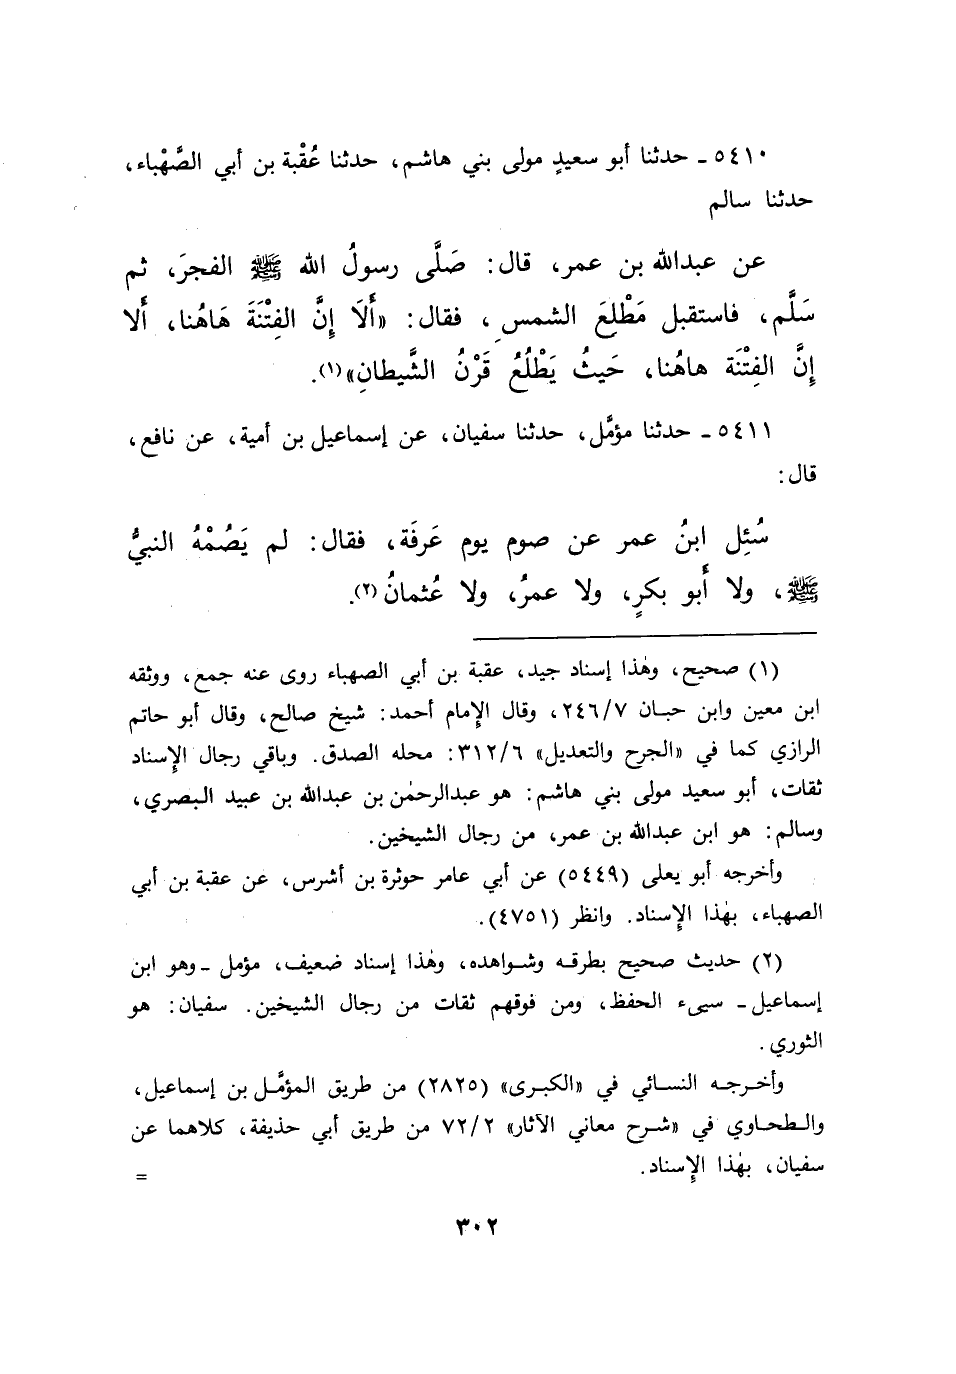 ٥٤١٠ ـ حدثنا أبو سعيدٍ مولى بني هاشم، حدثنا عُقْبة بن أبي الصَّهْباء،
حدثنا سالم
عن عبدالله بن عمر، قال: صَلَّى رسولُ الله ﷺ الفجرَ، ثم
سَلَّم، فاستقبل مَطْلِعَ الشمسِ، فقال: «أَلَا إِنَّ الفِتْنَةَ هَاهُنا، أَلا
إِنَّ الفِتْنَة هاهُنا، حَيثُ يَطْلُعُ قَرْنُ الشَّيطانِ»(١).
٥٤١١ ـ حدثنا مؤمَّل، حدثنا سفيان، عن إسماعيل بن أمية، عن نافع،
قال:
سُئِل ابنُ عمر عن صوم يوم عَرفَة، فقال: لم يَصُمْهُ النبيُّ
ﷺ، ولا أَبو بكرٍ، ولا عمرُ، ولا عُثمانُ(٢).
(١) صحيح، وهٰذا إسناد جيد، عقبة بن أبي الصهباء روى عنه جمع، ووثقه
ابن معين وابن حبان ٢٤٦/٧، وقال الإمام أحمد: شيخ صالح، وقال أبو حاتم
الرازي كما في «الجرح والتعديل» ٣١٢/٦: محله الصدق. وباقي رجال الإسناد
ثقات، أبو سعيد مولى بني هاشم: هو عبدالرحمٰن بن عبدالله بن عبيد البصري،
وسالم: هو ابن عبدالله بن عمر، من رجال الشيخين.
وأخرجه أبو يعلى (٥٤٤٩) عن أبي عامر حوثرة بن أشرس، عن عقبة بن أبي
الصهباء، بهٰذا الإسناد. وانظر (٤٧٥١).
(٢) حديث صحيح بطرقه وشواهده، وهٰذا إسناد ضعيف، مؤمل ـ وهو ابن
إسماعيل ـ سيىء الحفظ، ومن فوقهم ثقات من رجال الشيخين. سفيان: هو
الثوري.
وأخرجه النسائي في «الكبرى» (٢٨٢٥) من طريق المؤمَّل بن إسماعيل،
والطحاوي في «شرح معاني الآثار» ٧٢/٢ من طريق أبي حذيفة، كلاهما عن
سفيان، بهٰذا الإسناد.
=
٣٠٢